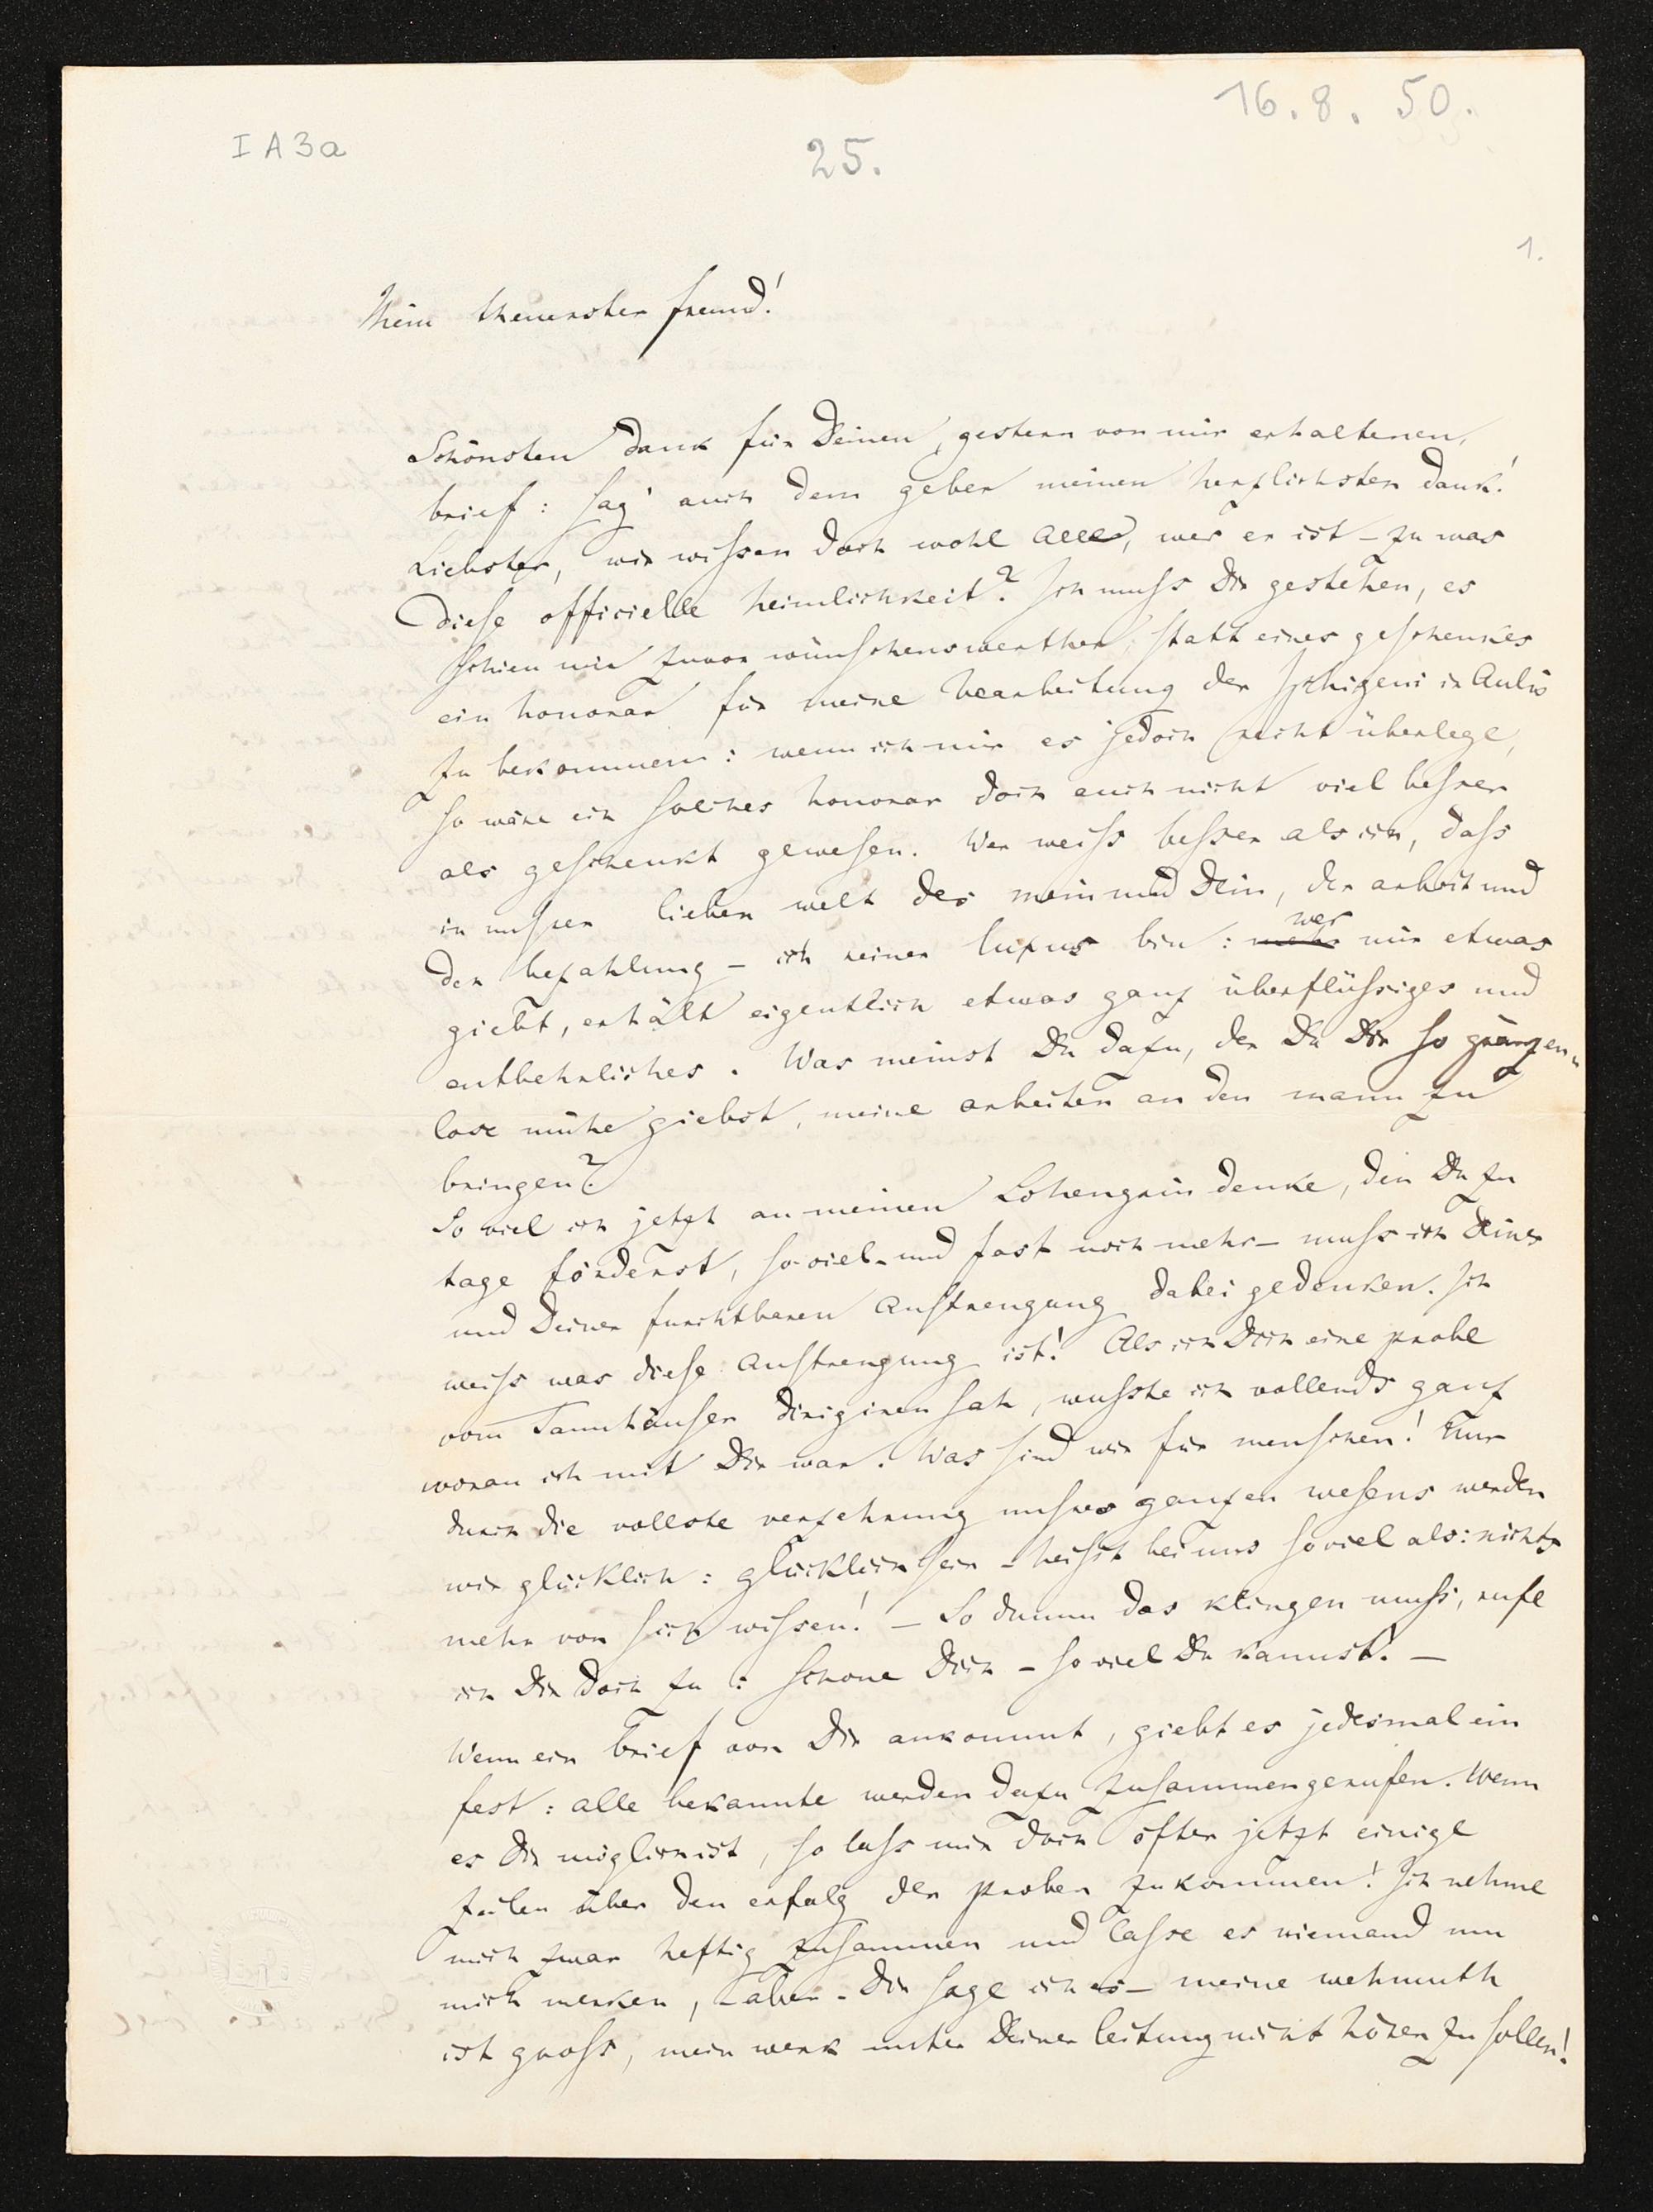 16. 8. 50.
I A 3 a
25.
1.
Mein theuerster freund!
Schönsten dank für Deinen, gestern von mir erhaltenen,
brief: sag' auch dem geber meinen herzlichsten dank!
Liebster, wir wissen doch wohl Alle, wer er ist – zu was
diese officielle heimlichkeit? Ich muss Dir gestehen, es
schien mir zuvor wünschenswerther statt eines geschenkes
ein honorar für meine bearbeitung der Iphigenia in Aulis
zu bekommen: wenn ich mir es jedoch recht überlege,
so wäre ein solches honorar doch auch nicht viel besser
als geschenkt gewesen. Wer weiss besser als ich, dass
in unsrer lieben welt des mein und Dein, der arbeit und
der bezahlung – ich reiner luxus bin: wer mir etwas
giebt, erhält eigentlich etwas ganz überflüssiges und
entbehrliches. Was meinst Du dazu, der Du Dir so gränzen-
lose mühe giebst, meine arbeiten an den mann zu
bringen?
So viel ich jetzt an meinen Lohengrin denke, den Du zu
tage förderst, so viel – und fast noch mehr – muss ich Deiner
und Deiner furchtbaren Anstrengung dabei gedenken. Ich
weiss was diese Anstrengung ist! Als ich Dich eine probe
vom Tannhäuser dirigiren sah, wusste ich vollends ganz
woran ich mit Dir war. Was sind wir für menschen! Nur
durch die vollste verzehrung unsres ganzen wesens werden
wir glücklich: glücklich sein – heisst bei uns so viel als: nichts
mehr von sich wissen! – So dumm das klingen muss, rufe
ich Dir doch zu: schone Dich – so viel Du kannst! –
Wenn ein brief von Dir ankommt, giebt es jedesmal ein
fest: alle bekannte werden dazu zusammengerufen. Wenn
es Dir möglich ist, so lass mir doch öfter jetzt einige
zeilen über den erfolg der proben zukommen! Ich nehme
mich zwar heftig zusammen und lasse es niemand um
mich merken, – aber – Dir sage ich es – meine wehmuth
ist gross, mein werk unter Deiner leitung nicht hören zu sollen!